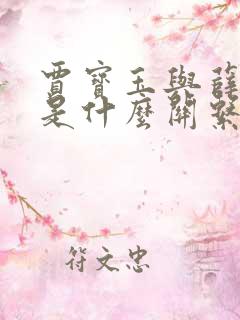 賈寶玉與薛
是什麼關係
符文忠